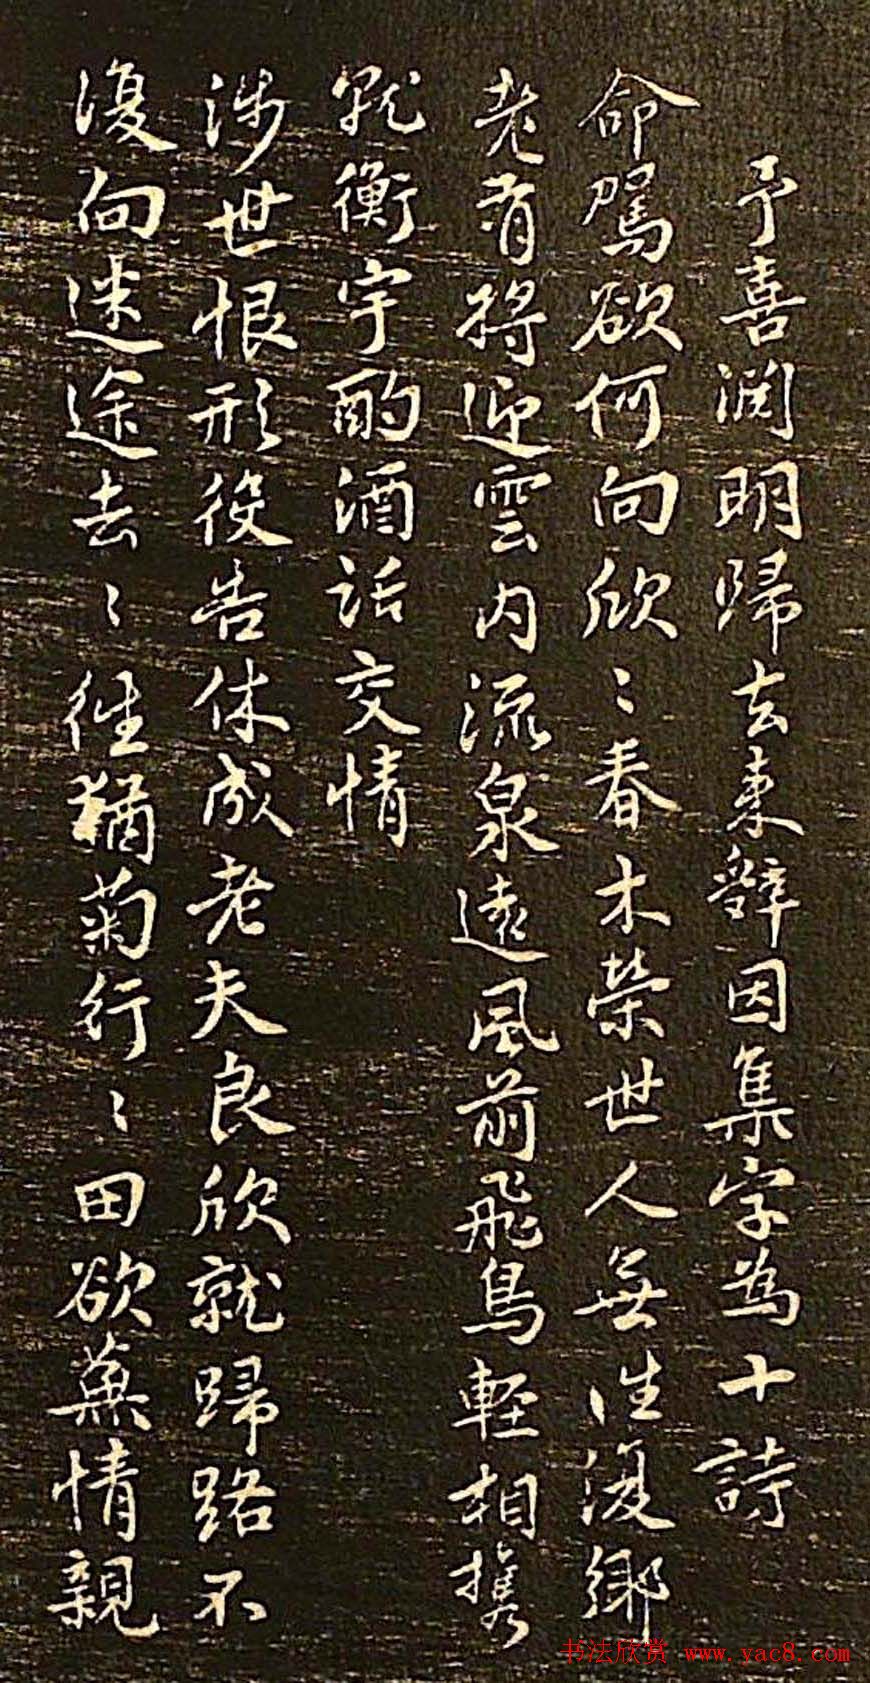 予喜渊明歸去来辭因集字為十詩
命駕欲何向欣〻春木榮世人無往復鄉
老有將迎雲内流泉遠風前飛鳥輕相攜
就衡宇酌酒話交情
涉世恨形役告休成老夫良欣就歸路不
復向迷途去〻徑猶菊行〻田欲蕪情親
书法欣赏 www.yac8.com